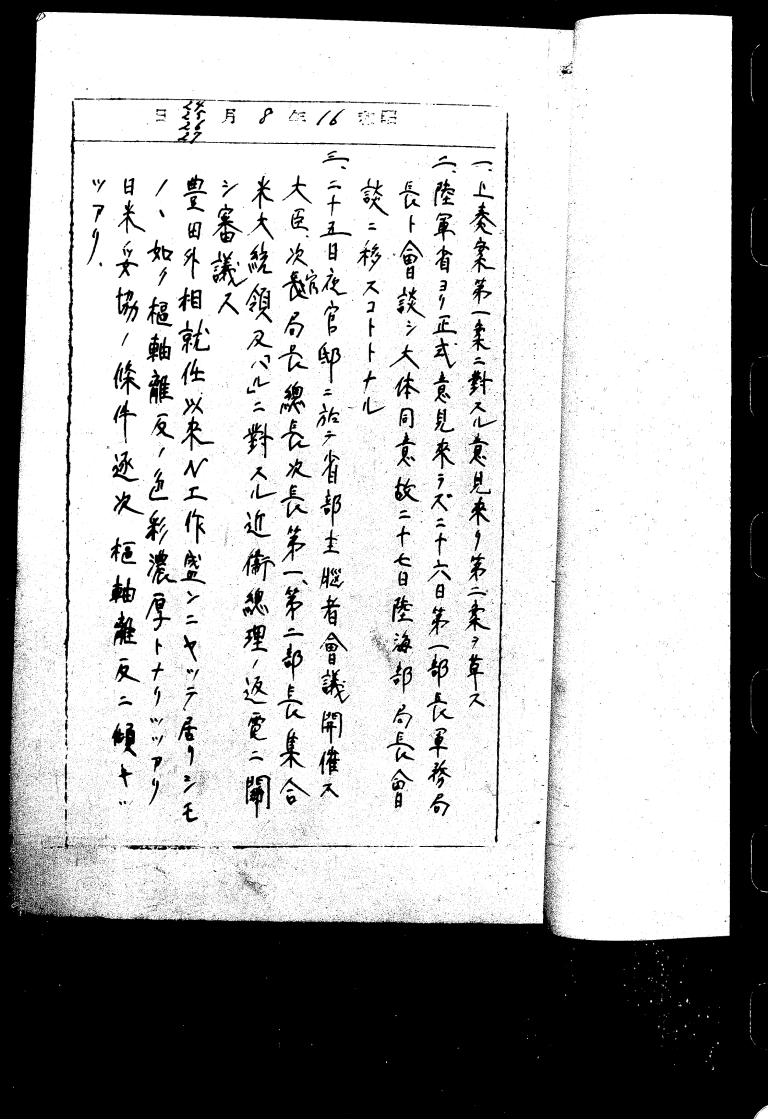 昭和16年8月24 25 26 27日
一、上奏案第一案ニ對スル意見來リ第二案ヲ草ス
二、陸軍省ヨリ正式意見來ラズ二十六日第一部長軍務局
長ト會談シ大体同意故二十七日陸海部局長會
談ニ移スコトトナル
三、二十五日夜官邸ニ於テ省部主腦者會議開催ス
大臣、次官、長局長總長次長第一、第二部長集合
米大統領及「ハル」ニ對スル近衞總理ノ返電ニ關
シ審議ス
豊田外相就任以来N工作盛ンニヤッテ居リシモ
ノヽ如ク樞軸離反ノ色彩濃厚トナリツツアリ
日米妥協ノ條件逐次樞軸離反ニ傾キツ
ツアリ、